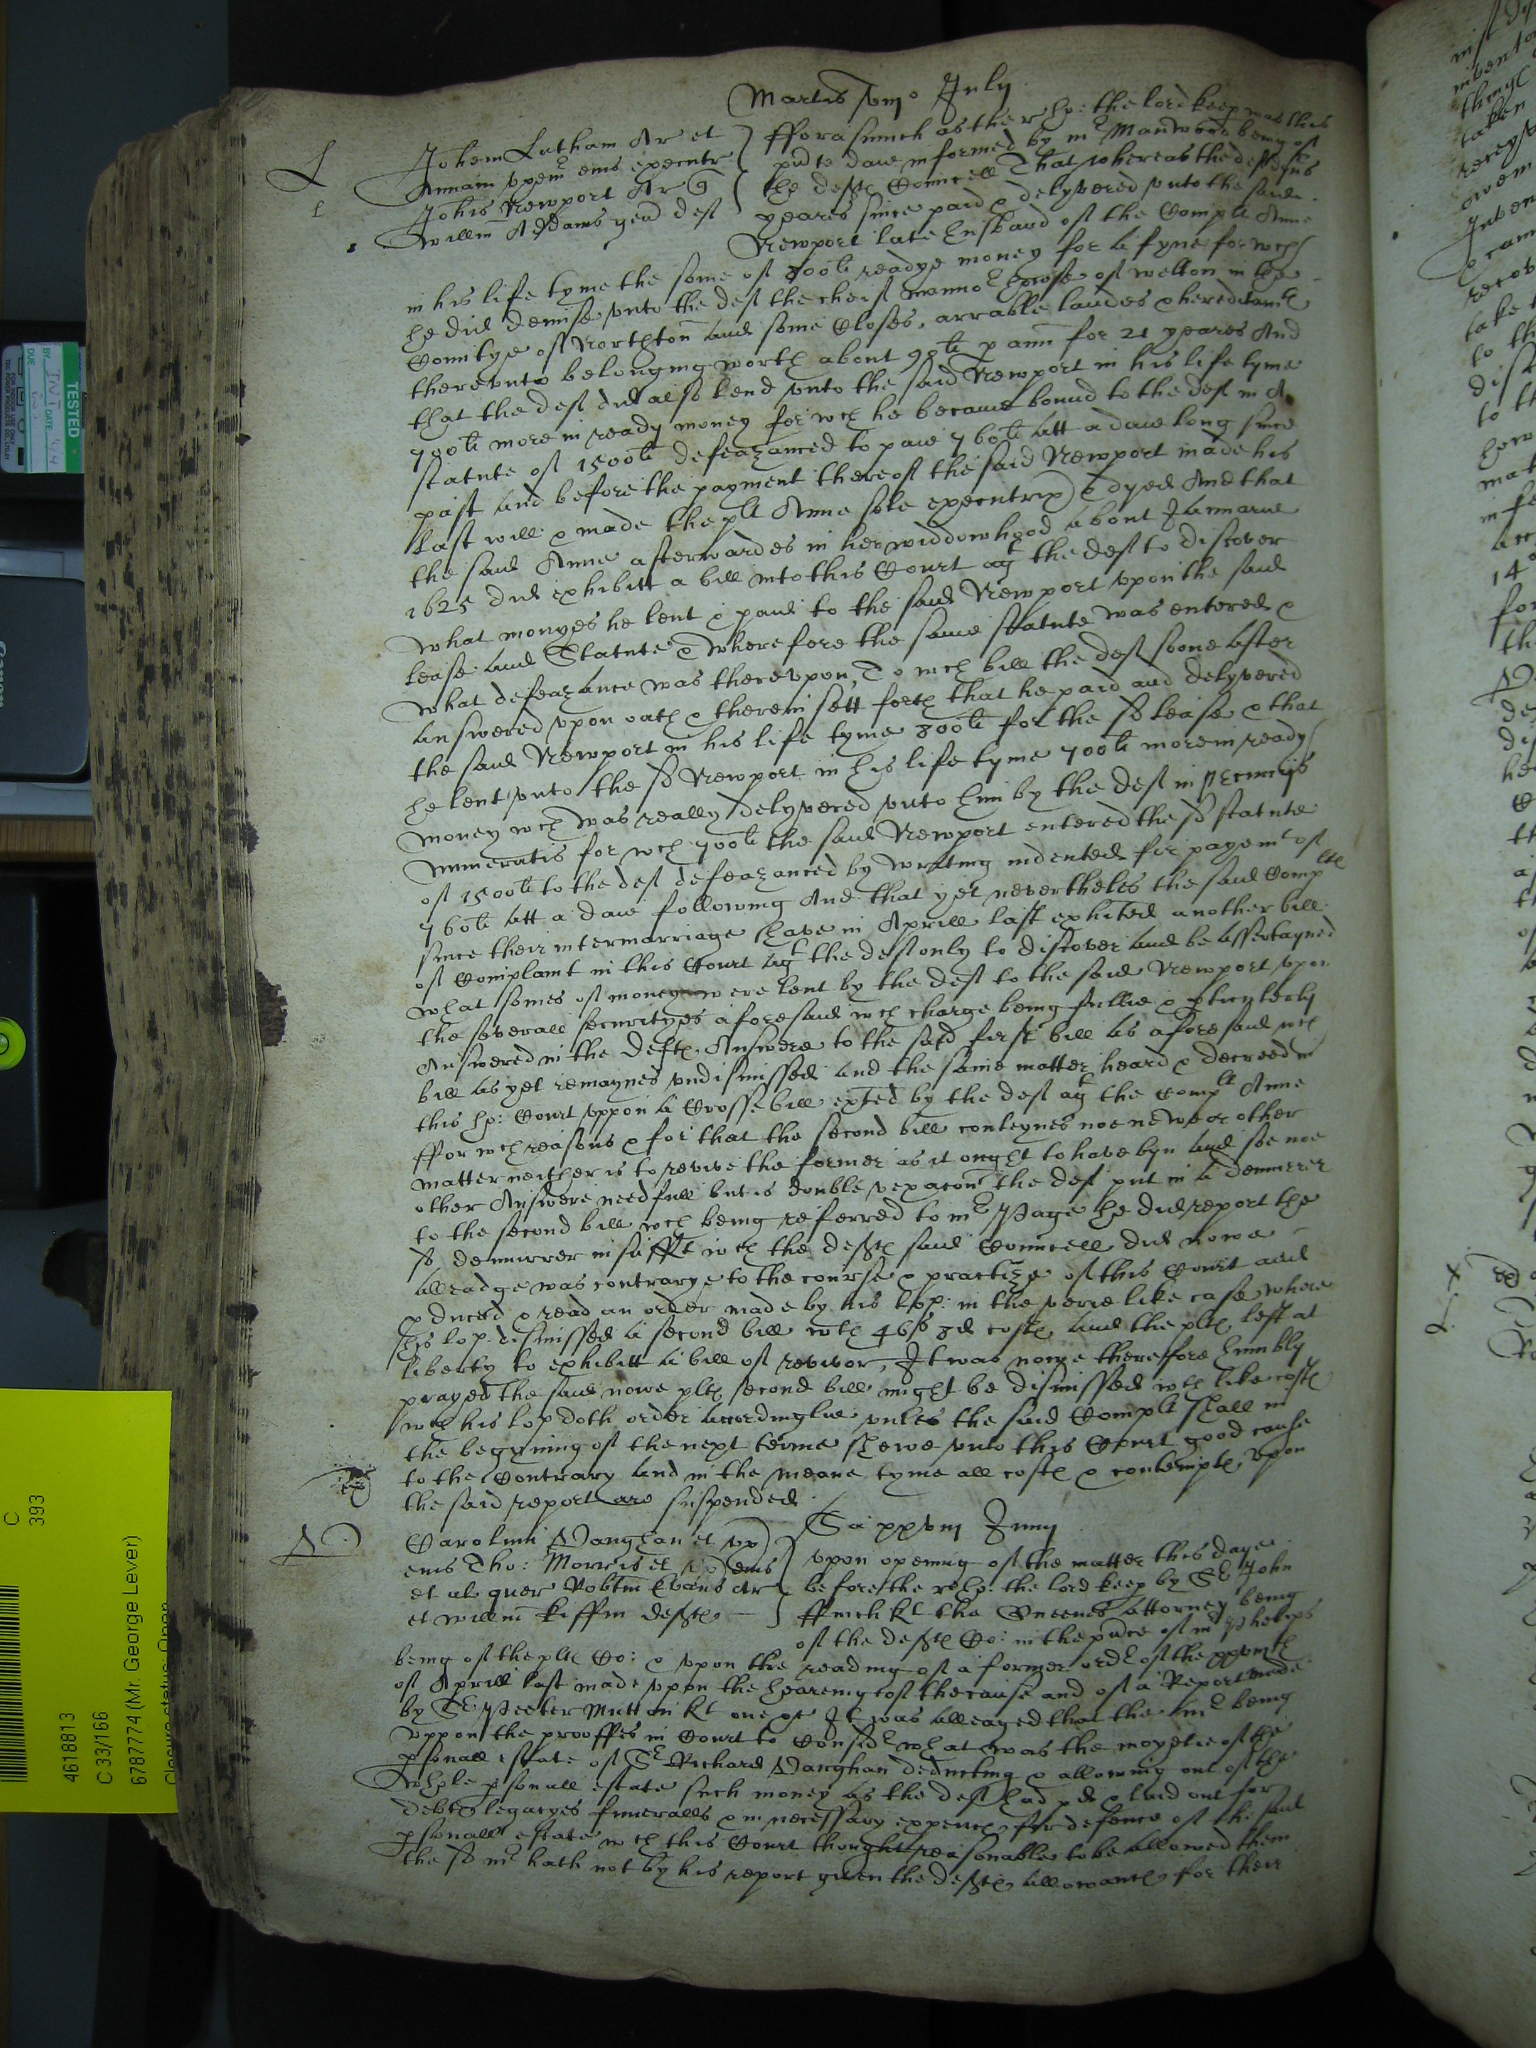 Martis viijo July
L
Johem Latham Ar et
Annam uxem eius executr
Johis Newport Ar
Willm Addams gen def
fforasmuch as the r ho: the lord keep was this
pnte daie informed by mr Manwood being of
the deftes Councell That whereas the deft
yeares since paid & delyvered unto the said
Newport late husband of the Complt Anne
in his life tyme the some of 800li readye money for a fyne for wch
he did demise unto the def the cheif mannor howse of welton in the
Countye of Northton and some Closes, arrable landes & hereditamtes
thereunto belonging worth about 90li p ann for 21 yeares And
that the def did also lend unto the said Newport in his life tyme
700li more in ready money for wch he became bound to the def in A
statute of 1500li defeazanced to paie 760li att a daie long since
past and before the payment thereof the said Newport made his
last will & made the plt Anne sole executrix & dyed And that
the said Anne afterwardes in her widdowhood about Januarie
1625 did exhibitt a bill into this Court agt the def to discover
what monyes he lent & paid to the said Newport upon the said
lease and Statute & wherefore the same statute was entered &
what defeazance was thereupon, To wch bill the def soone after
answered upon oath & therein sett forth that he paid and delyvered
the said Newport in his life tyme 800li for the sd lease & that
he lent unto the sd Newport in his life tyme 700li more in ready
money wch was really delyvered unto him by the def in pecunijs
numeratis for wch 700li the said Newport entered the sd statute
of 1500li to the def defeazanced by wryting indented for payemt of
760li att a daie following And that yet neverthelés the said Complts
since their intermarriage have in Aprill last exhited another bill
of Complaint in this Court agt the def only to discover and be assertayned
what somes of money were lent by the def to the said Newport upon
the severall securityes aforesaid wch charge being fullie & pticulerly
Answered in the deftes Answere to the said first bill as aforesaid wch
bill as yet remaynes undismissed and the same matter heard & decreed in
this ho: Court uppon a Crosse bill exted by the def agt the Complt Anne
ffor wch reasons & for that the second bill conteynes noe newe or other
matter neither is to revive the former as it ought to have byn and soe noe
other Answere needfull but is double vexacon the def put in a demurrer
to the second bill wch being referred to mr Page he did report the
sd demurrer insufft wch the deftes said Councell did nowe
alleadge was contrarye to the course & practize of this Court and
pduced & read an order made by his lop: in the verie like case where
his lop dismissed a second bill wth 46s 8d costes and the plts left at
liberty to exhibitt a bill of revivor, It was nowe therefore humbly
prayed the said nowe plts second bill might be dismissed wth like costes
wch his lop doth order accordinglie unles the said Complt shall in
the begyning of the next terme shewe unto this Court good cause
to the Contrary and in the meane tyme all costes & contemptes upon
the said report are suspended
Sa xxviij Junij
V
Carolum Vaughan et ux
eius Tho: Morris et ux eius
et al quer Robtm Evans Ar
et Willm Kiffin deftes
upon opening of the matter this daye
before the r ho: the lord keep by Sr John
ffinch Kt the Queenes Attorney being
of the deftes Co: in the pnce of mr Phelips
being of the plts Co: & upon the reading of a former order of the xxvith
of Aprill last made uppon the heareing of the cause and of a Report made
by Sr Peeter Mutton Kt one &c It was alleaged that the mr being
uppon the prooffes in Court to Consider what was the moyetie of the
psonall estate of Sr Richard Vaughan deducting & allowing out of the
whole psonall estate such money as the def had pd & laid out for
debtes legacyes funeralls & in necessary expences for defence of the said
psonall estate wch this Court thought reasonable to be allowed them
the sd mr hath not by his report given the deftes allowance for their
TESTED
BY
DATE
DUE
C
393
4618813
C 33/166
6787774 (Mr. George Lever)
Closure status: Open